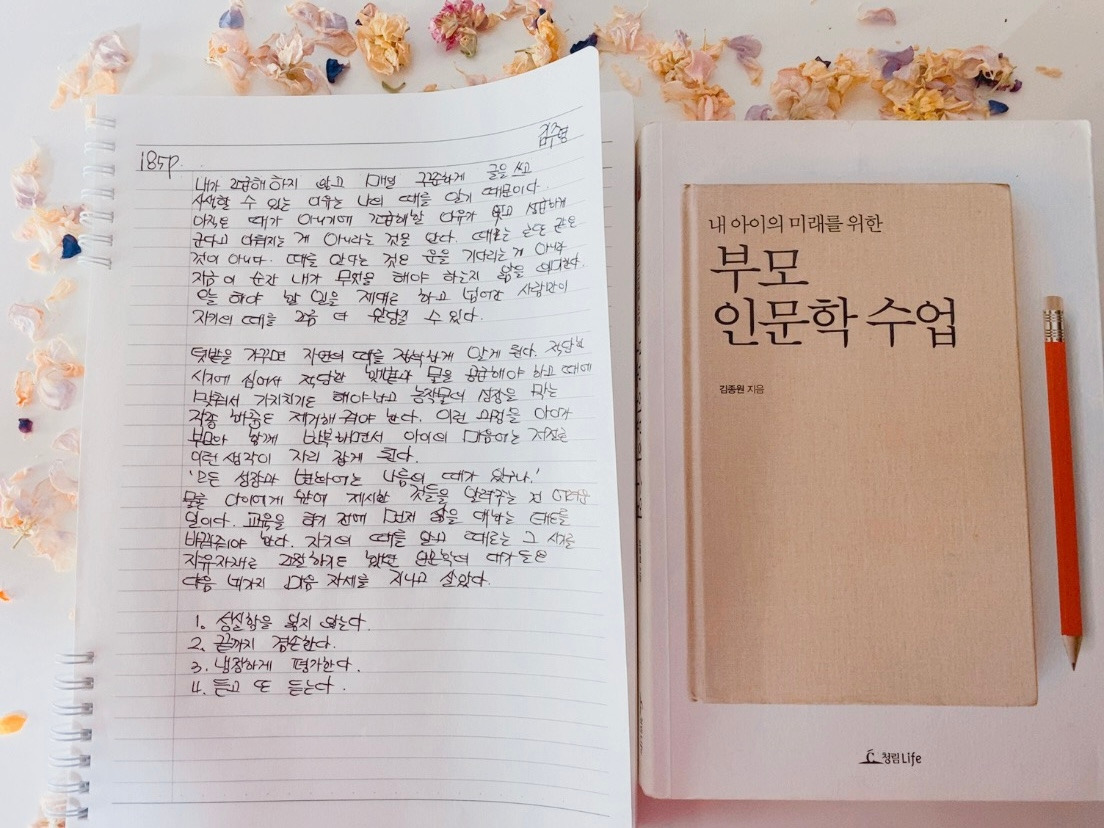 김수영
185p.
내가 조급해 하지 않고 매일 꾸준하게 글을 쓰고
사색할 수 있는 이유는 나의 때를 알기 때문이다.
아직은 때가 아니기에 조급해할 이유가 없고 성급하게
군다고 이뤄지는 게 아니라는 것을 안다. 때로는 운도 같은
것이 아니다. 때를 안다는 것은 운을 기다리는 게 아니라
지금 이 순간 내가 무엇을 해야 하는지 앎을 의미한다.
오늘 해야 할 일을 제대로 하고 넘어간 사람만이
자기의 때를 조금 더 앞당길 수 있다.
텃밭을 가꾸면 자연의 때를 정확하게 알게 된다. 적당한
시기에 심어서 적당한 햇볕과 물을 공급해야 하고 때에
맞춰서 가지치기도 해야하고 농작물의 성장을 막는
각종 해충도 제거해 줘야 한다. 이런 과정을 아이가
부모와 함께 반복하면서 아이의 마음에는 저절로
이런 생각이 자리 잡게 된다.
'모든 성장과 변화에는 나름의 때가 있구나.'
물론 아이에게 앞에 제시한 것들을 알려주는 건 어려운
일이다. 교육을 하기 전에 먼저 삶을 대하는 태도를
바꿔줘야 한다. 자기의 때를 알고 때로는 그 시기를
자유자재로 조절하기도 했던 인문학의 대가들은
다음 네가지 마음 자세를 지니고 살았다.
1. 성실함을 잃지 않는다.
2. 끝까지 겸손한다.
3. 냉정하게 평가한다.
4. 듣고 또 듣는다.
내 아이의 미래를 위한
부모
인문학 수업
김종원 지음
청림Life